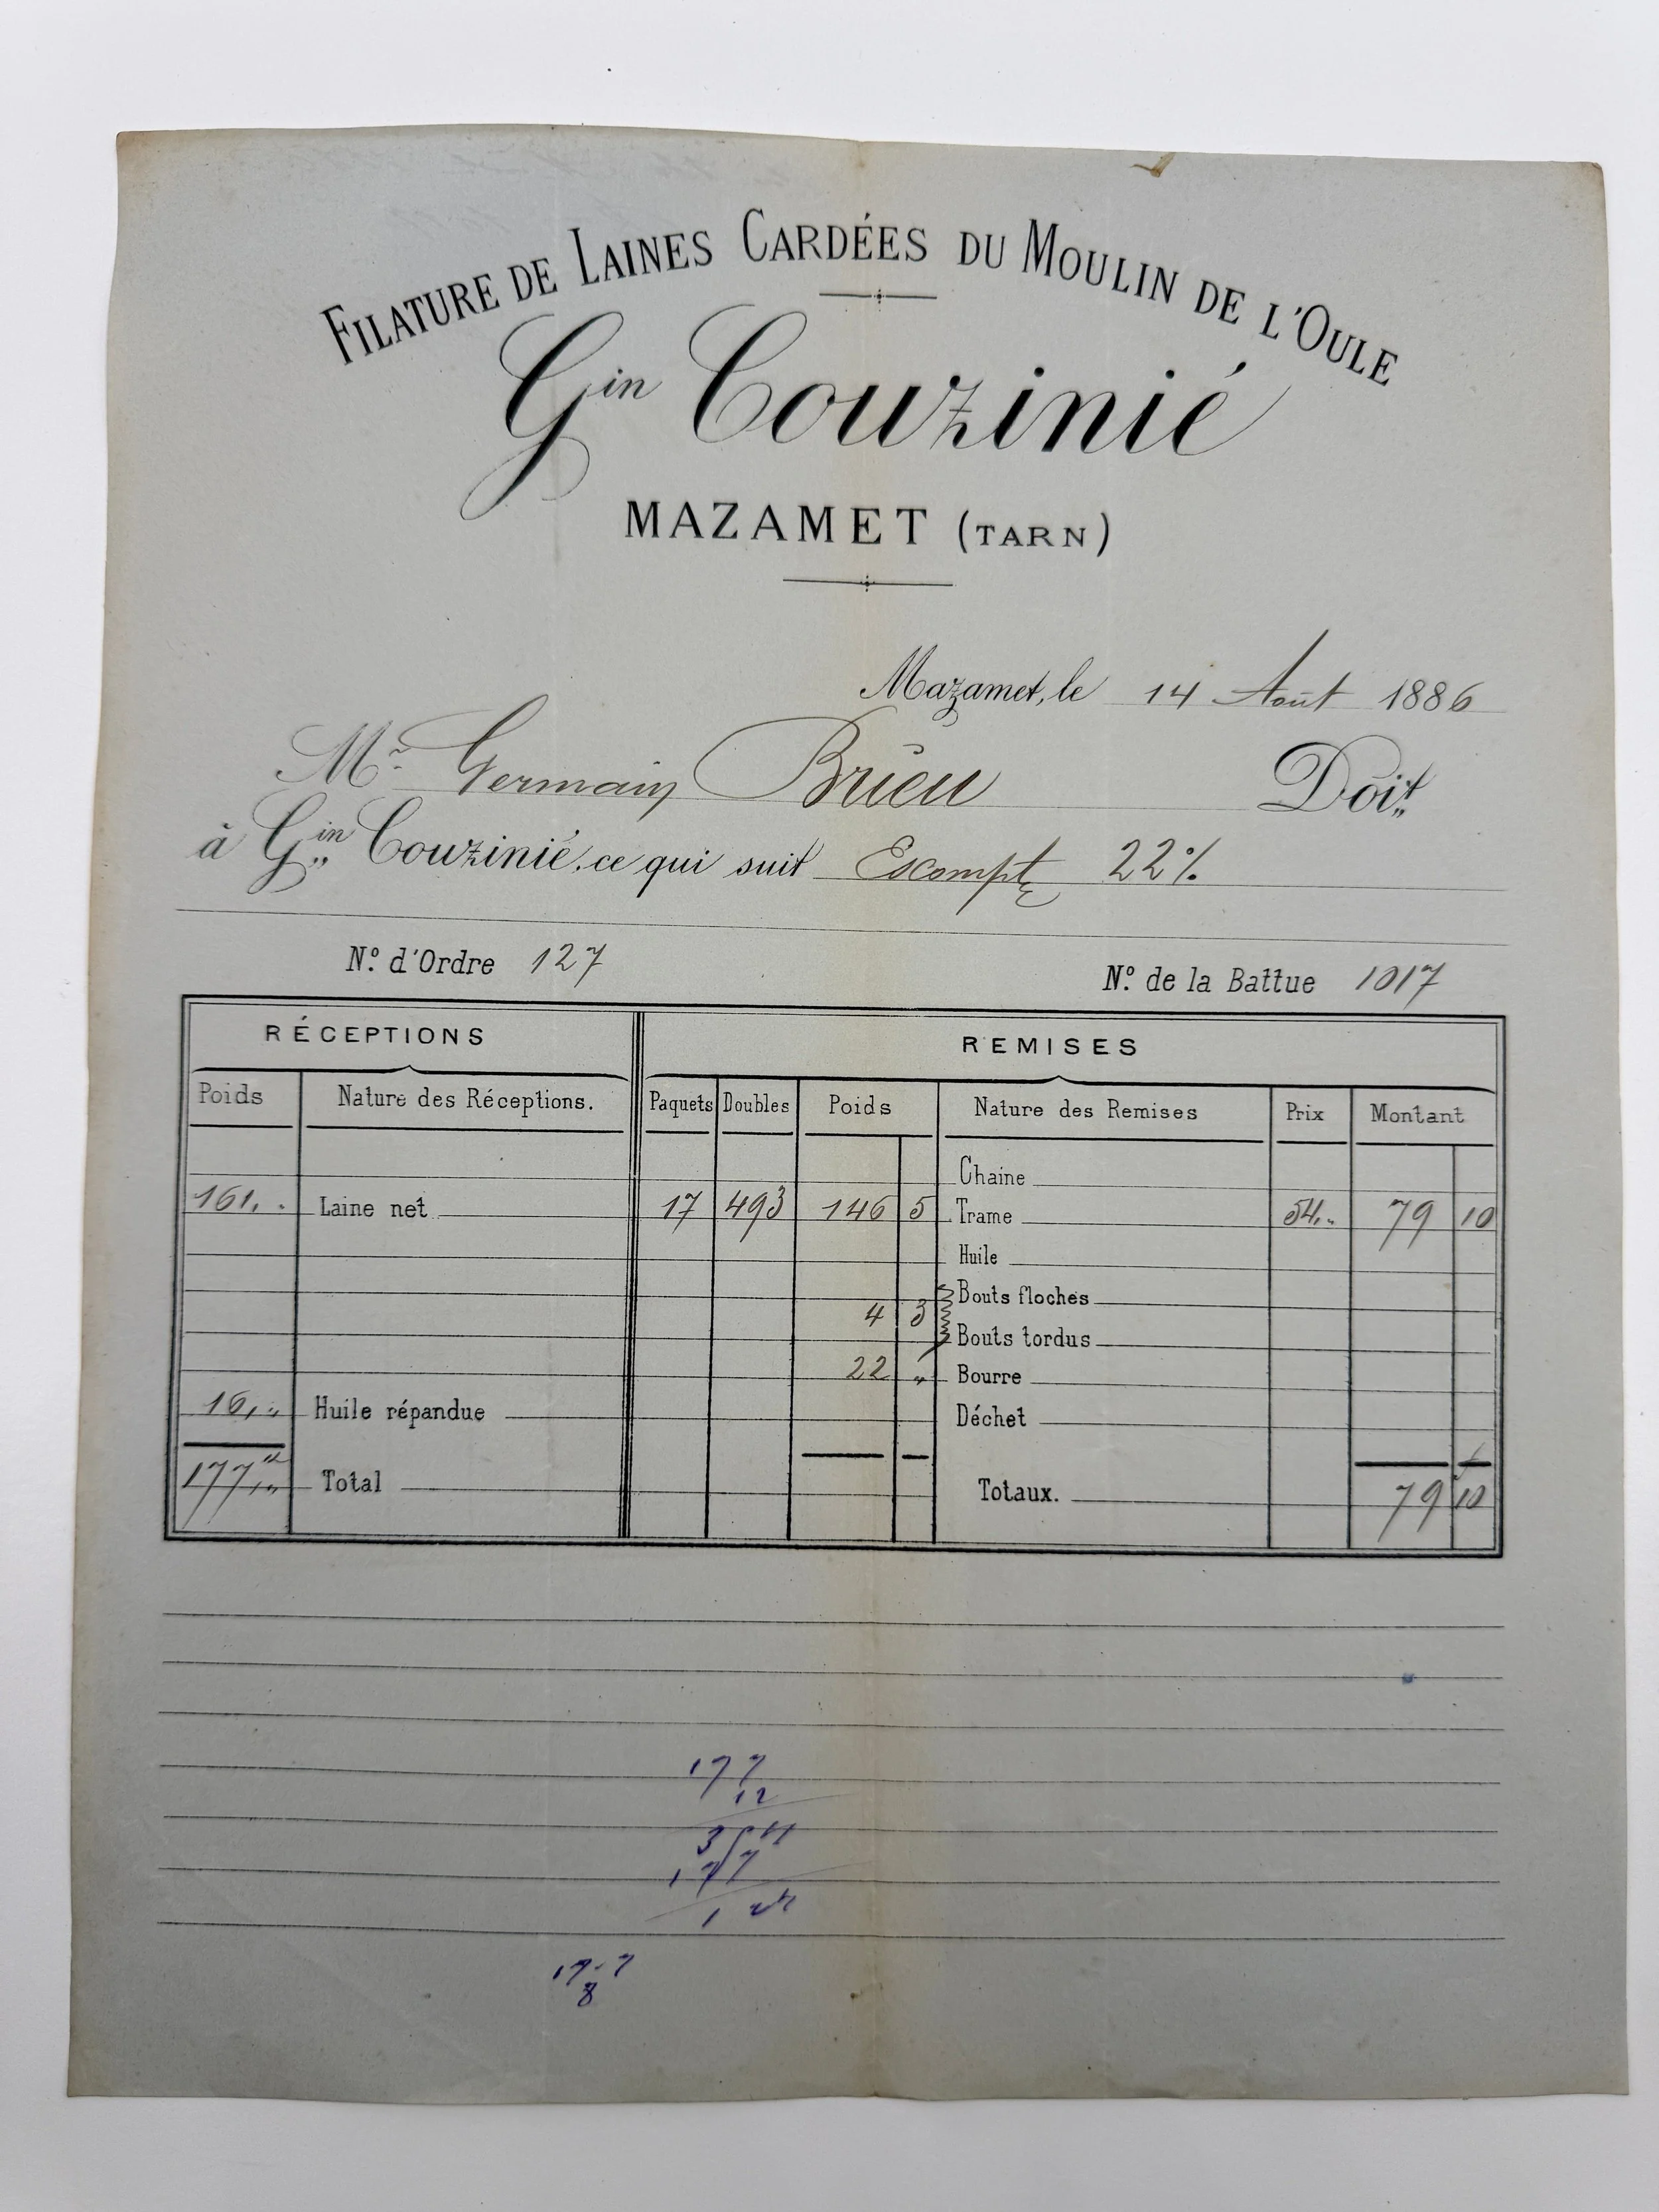 FILATURE DE LAINES CARDÉES DU MOULIN DE L'OULE
Gin Couzinié
MAZAMET (TARN)
Mazamet, le 14 Août 1886
Mr Germain Brieu Doit
à Gin Couzinié, ce qui suit Escompte 22%
N.º d'Ordre 127
N.º de la Battue 1017
RÉCEPTIONS REMISES
Poids Nature des Réceptions. Paquets Doubles Poids Nature des Remises Prix Montant
Chaine
161,. Laine net 17 493 146 5 Trame 54,. 79 10
Huile
Bouts floches
4 3
Bouts tordus
22 " Bourre
16,. Huile répandue Déchet
177 Total Totaux. 79 10
177
12
354
177
17-7
8